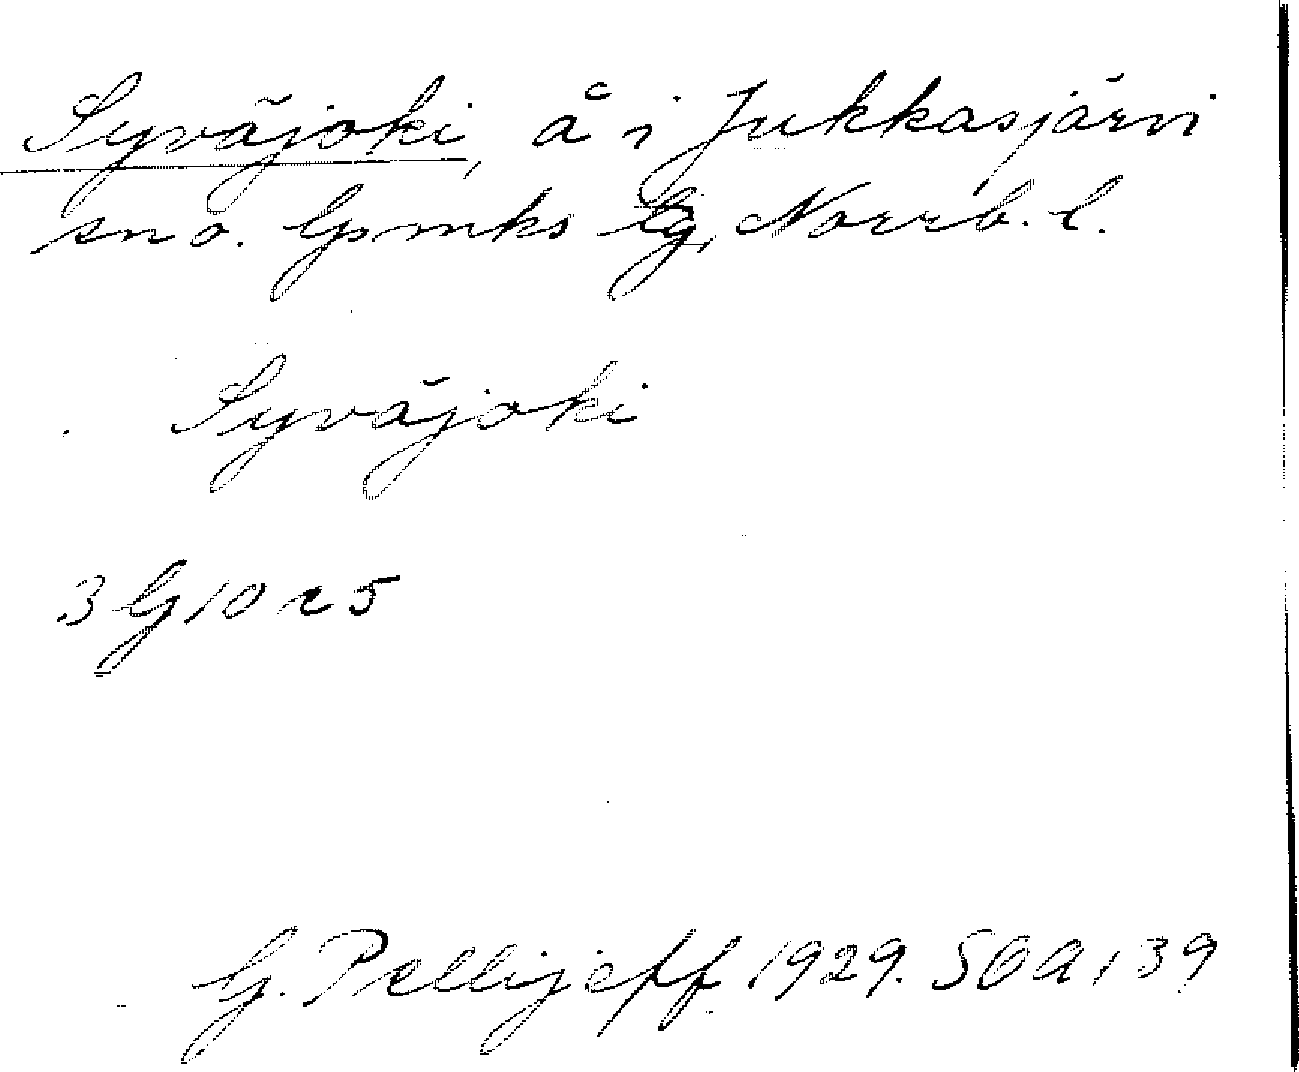 Syväjoki, å i Jukkasjärvi
sn o. Gsmks lg, Norrb. l.
Syväjoki
3 G 10 r 5
G. Pellijeff 1929. SOA, 39